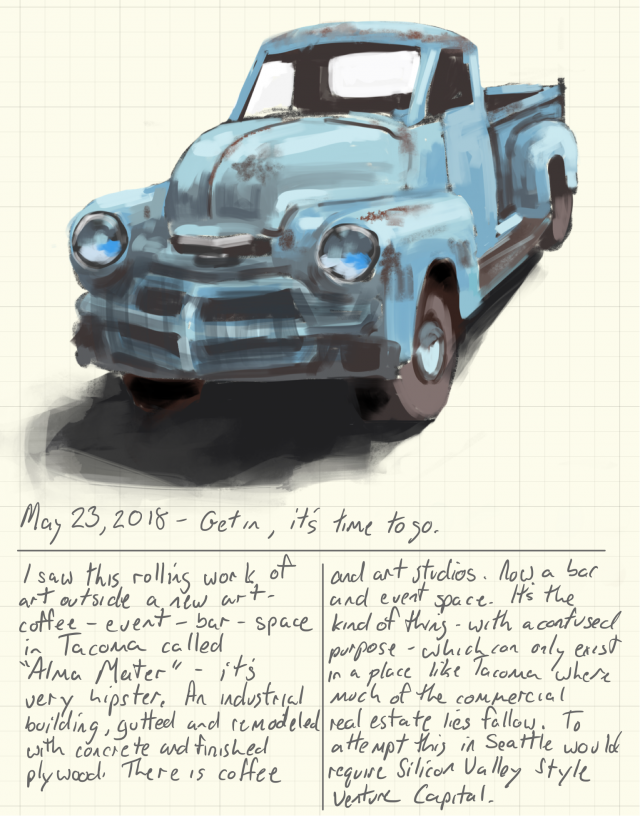 May 23, 2018 - Get in, it's time to go.
I saw this rolling work of
art outside a new art-
coffee - event - bar - space
in Tacoma called
"Alma Mater" - it's
very hipster. An industrial
building, gutted and remodeled
with concrete and finished
plywood. There is coffee
and art studios. Now a bar
and event space. It's the
kind of thing - with a confused
purpose - which can only exist
in a place like Tacoma where
much of the commercial
real estate lies fallow. To
attempt this in Seattle would
require Silicon Valley Style
Venture Capital.